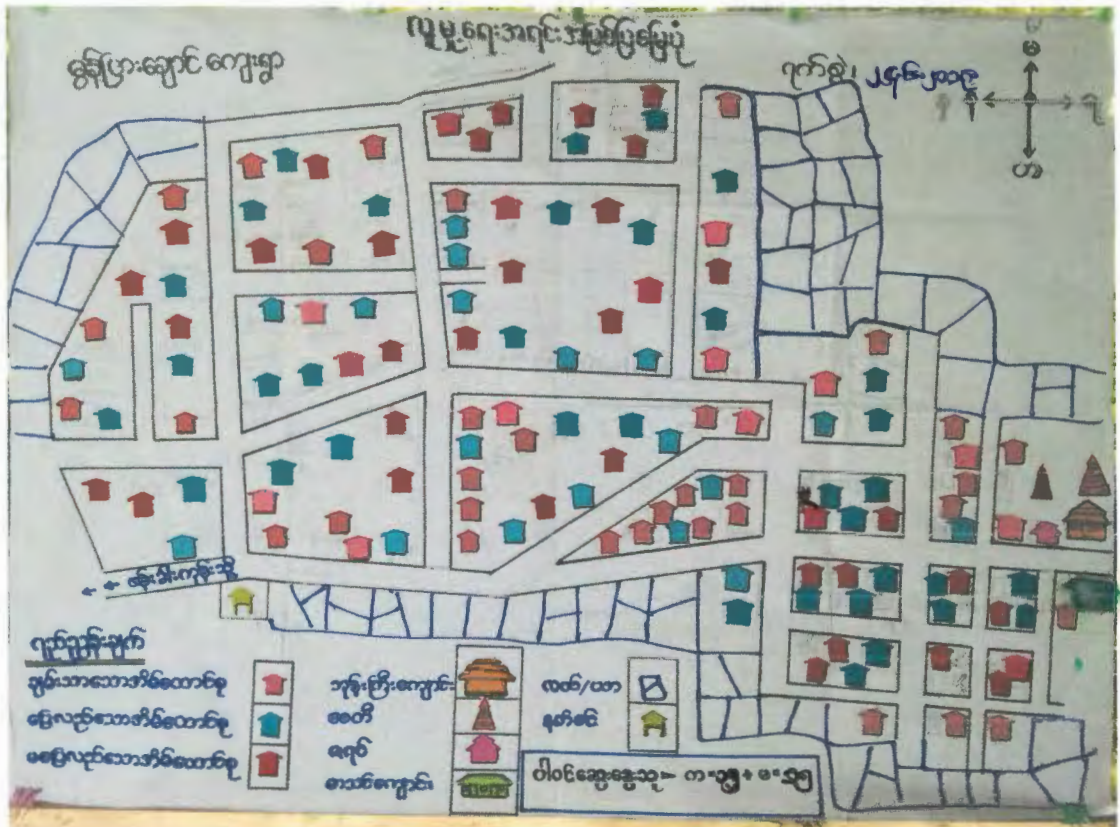 လူမှုရေးအရင်းအမြစ်ပြမြေပုံ
မွန်ပြားချောင် ကျေးရွာ
ရက်စွဲ၊ ၂၄၊၆၊၂၀၁၉
မ
ရ
တ
ရည်ညွှန်းချက်
ချမ်းသာသောအိမ်ထောင်စု
ပြေလည်သောအိမ်ထောင်စု
မပြေလည်သောအိမ်ထောင်စု
ဘုန်းကြီးကျောင်း
စေတီ
ဇရပ်
စာသင်ကျောင်း
လယ်/ယာ
နတ်စင်
ပါဝင်ဆွေးနွေးသူ - က=၁၅ + မ=၁၅